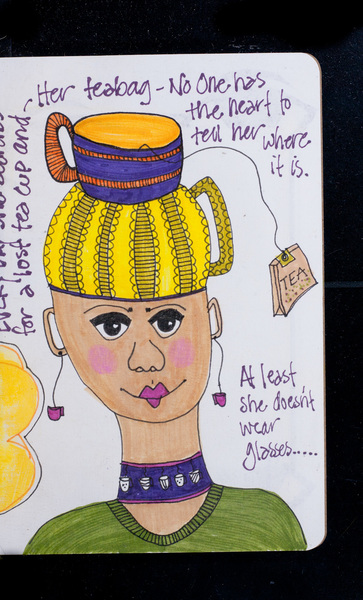 for a lost tea cup and,
Her teabag - No One has
the heart to
tell her where
it is.
TEA
At least
she doesn't
wear
glasses.....